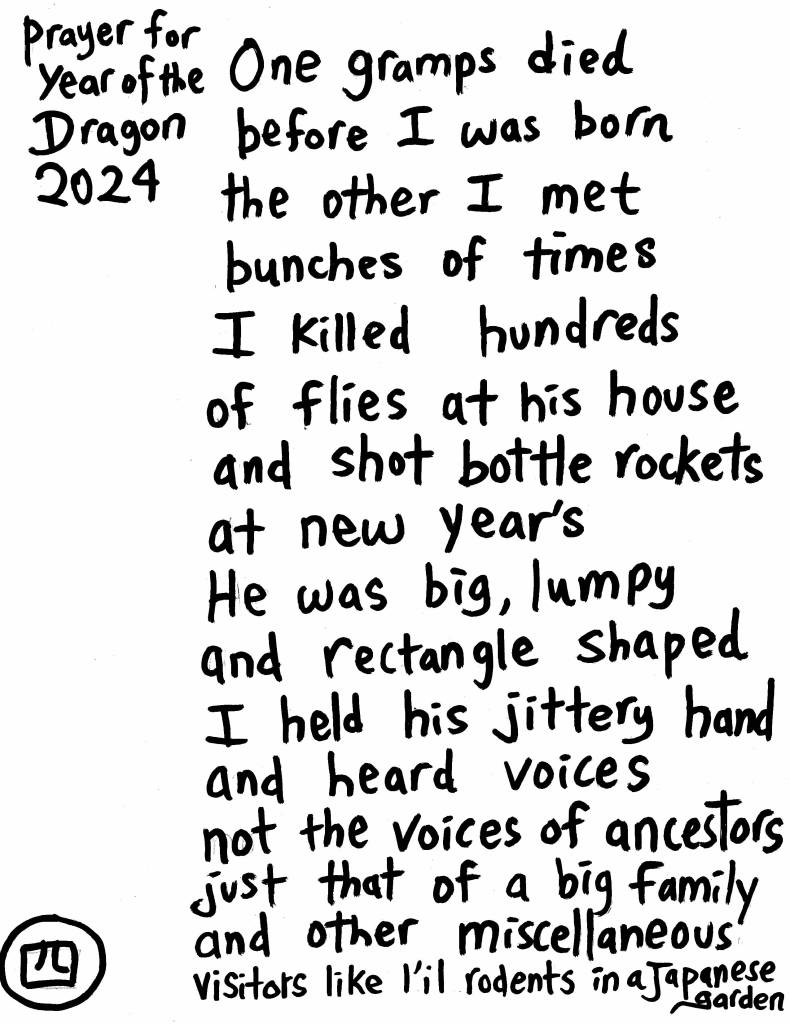 Prayer for
Year of the
Dragon
2024
One gramps died
before I was born
the other I met
bunches of times
I killed hundreds
of flies at his house
and shot bottle rockets
at new year's
He was big, lumpy
and rectangle shaped
I held his jittery hand
and heard voices
not the voices of ancestors
just that of a big family
and other miscellaneous
visitors like l'il rodents in a Japanese
garden
四